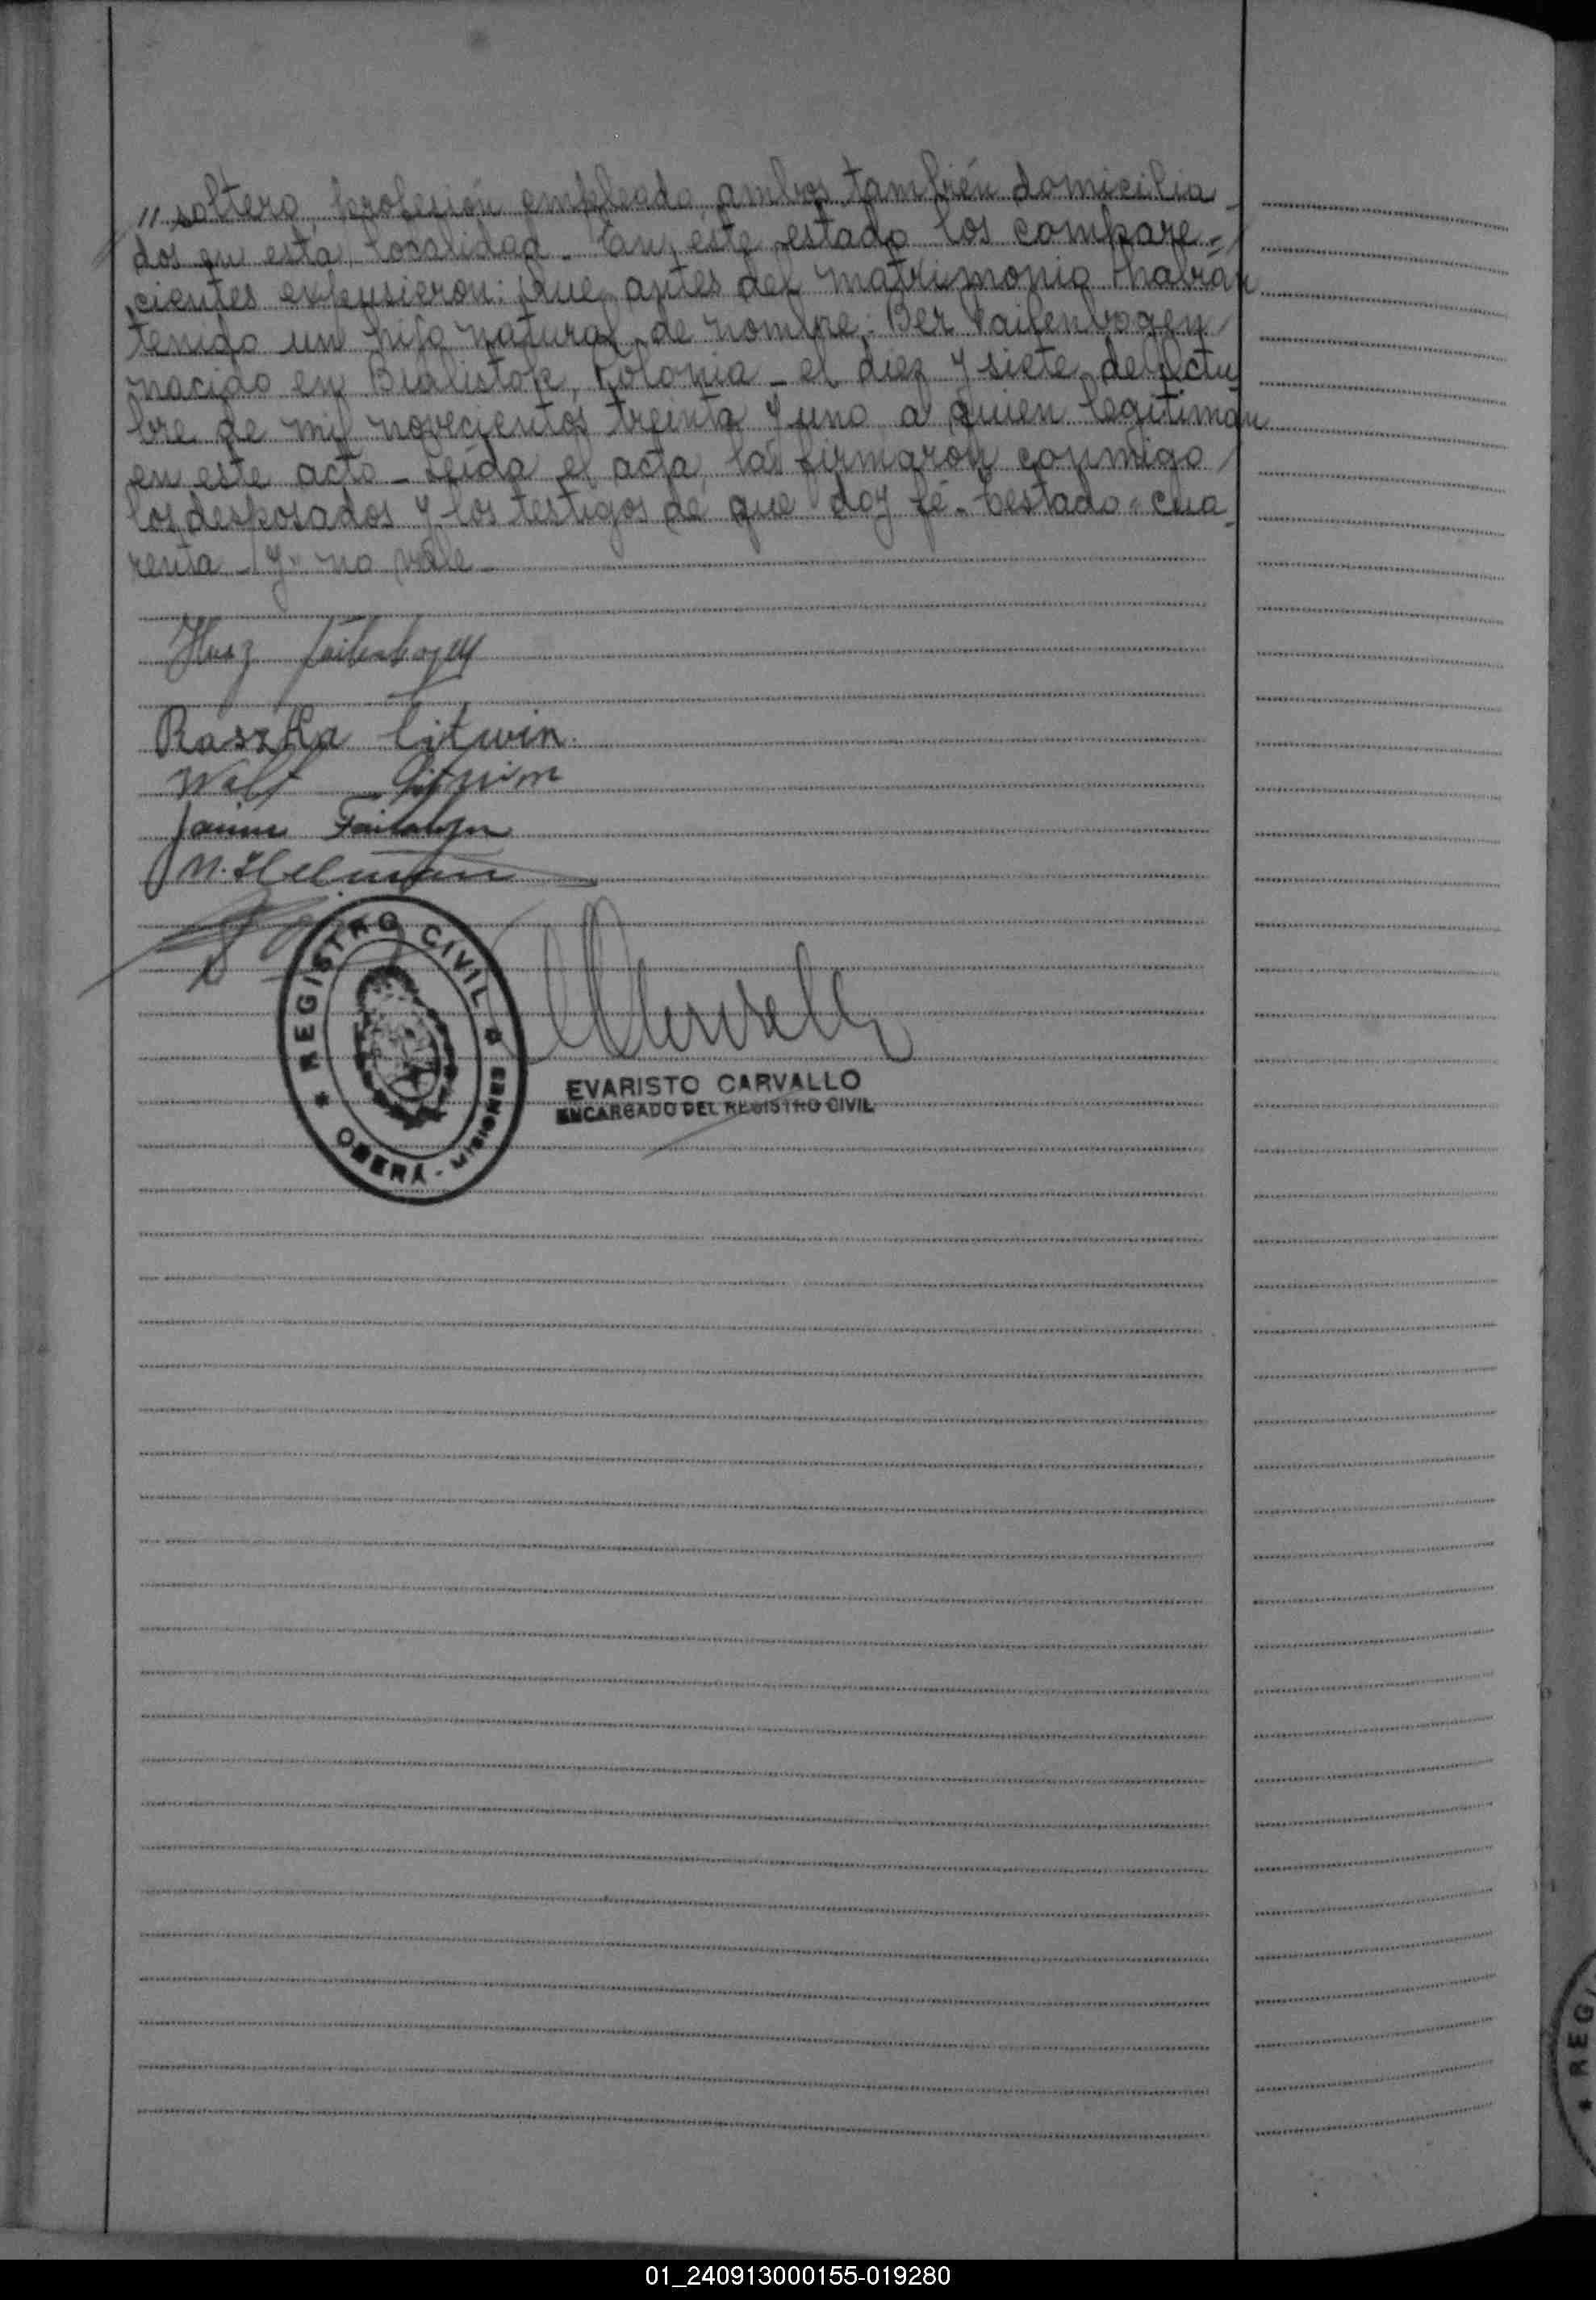 " soltero, profesión empleado, ambos también domicilia_
dos en esta localidad_ En este estado los compare=
cientes expusieron: Que antes del matrimonio habían
tenido un hijo natural de nombre: Ber Faifenbogen
nacido en Bialistok, Polonia_ el diez y siete de Octu
bre de mil novecientos treinta y uno a quien legitiman
en este acto_ Leída el acta, la firmaron conmigo
los desposados y los testigos de que doy fé_ Testado "cua_
renta y" no vale_
Raszka Litwin
Wolf Litwin
REGISTRO CIVIL
OBERÁ - MISIONES
EVARISTO CARVALLO
ENCARGADO DEL REGISTRO CIVIL
REG
01_240913000155-019280